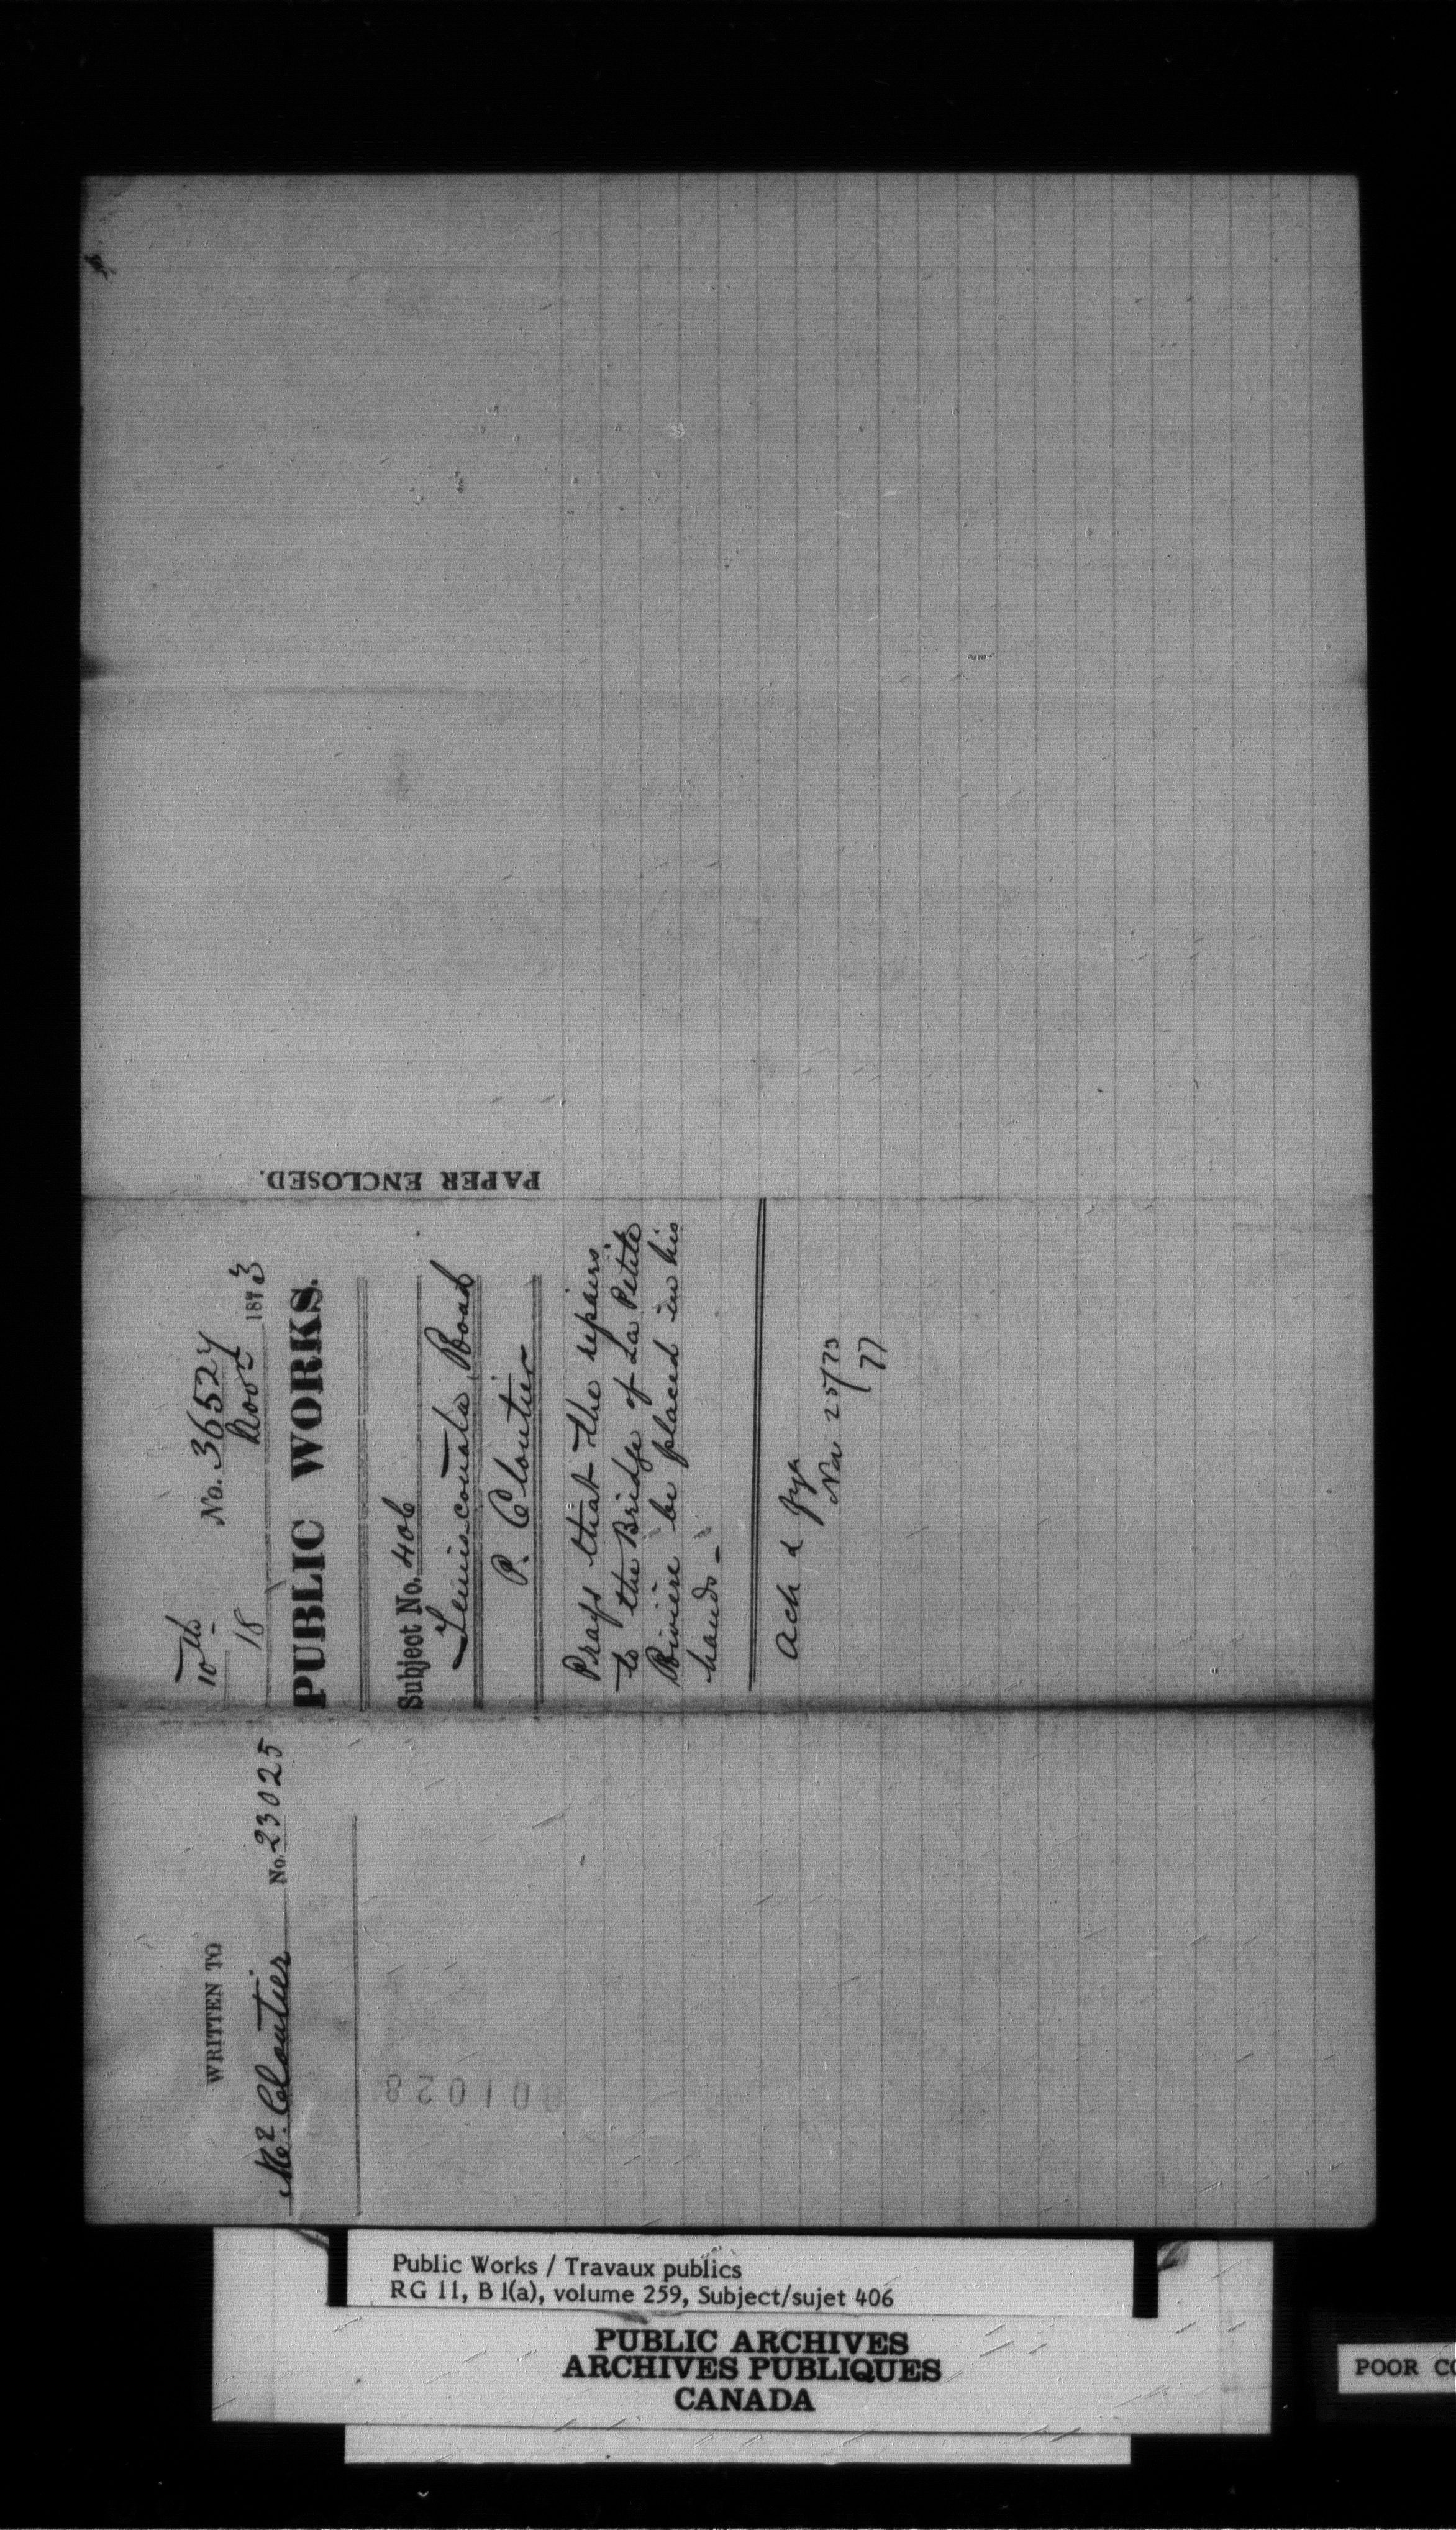 10th No. 36527
18 Novr 1873
PUBLIC WORKS.
Subject No. 406
Temiscouata Road
P. Cloutier
Prays that the repairs
to the Bridge of La Petite
Rivière be placed in his
hands -
Ack &
Nov 25/73
77
PAPER ENCLOSED.
WRITTEN TO
Mr. Cloutier No. 23025
001028
Public Works / Travaux publics
RG 11, B 1(a), volume 259, Subject/sujet 406
PUBLIC ARCHIVES
ARCHIVES PUBLIQUES
CANADA
POOR CO